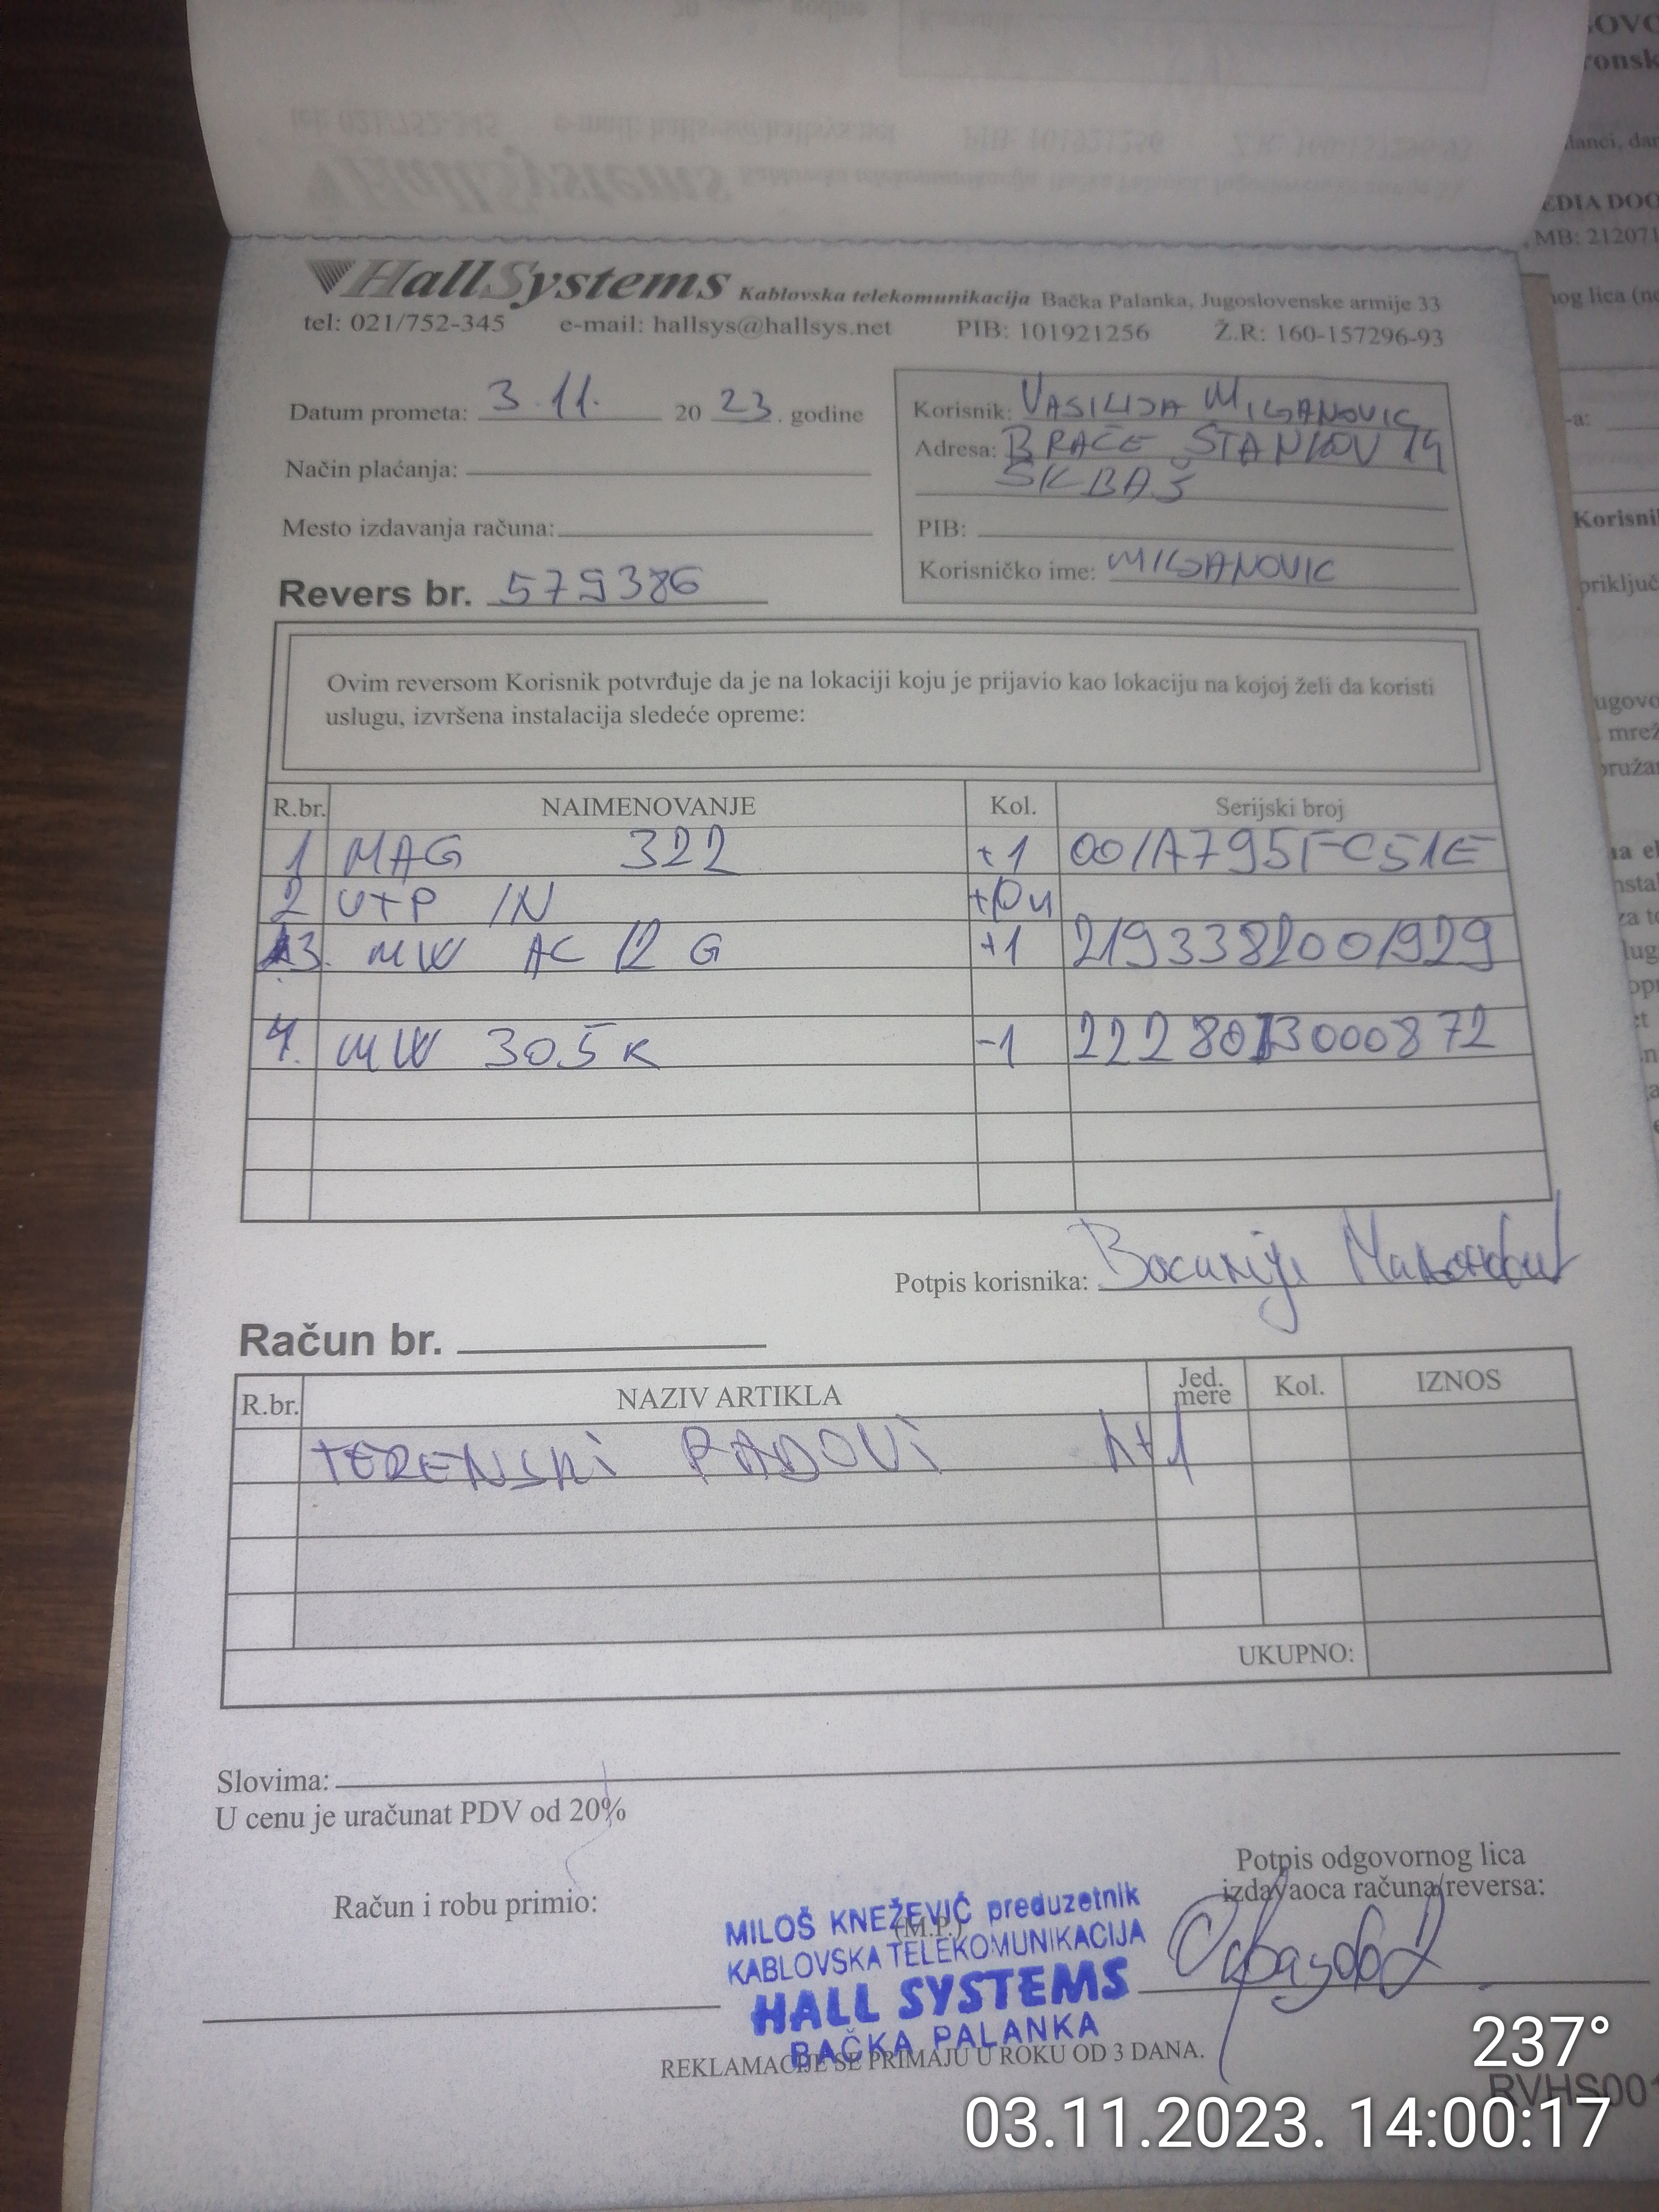 HallSystems Kablovska telekomunikacija Bačka Palanka, Jugoslovenske armije 33
tel: 021/752-345 e-mail: hallsys@hallsys.net PIB: 101921256 Ž.R: 160-157296-93
Datum prometa: 3.11. 20 23. godine
Način plaćanja:
Mesto izdavanja računa:
Revers br. 579386
Korisnik: VASILIJA MILJANOVIC
Adresa: BRAĆE STANKOV 14
BK BAŠ
PIB:
Korisničko ime: MILJANOVIC
Ovim reversom Korisnik potvrđuje da je na lokaciji koju je prijavio kao lokaciju na kojoj želi da koristi
uslugu, izvršena instalacija sledeće opreme:
R.br. NAIMENOVANJE Kol. Serijski broj
1 MAG 322 +1 001A795FC51E
2 UTP IN +10м
3. MW AC 12 G +1 2193382001929
4. MW 305R -1 2228013000872
Potpis korisnika:
Račun br.
R.br. NAZIV ARTIKLA Jed. mere Kol. IZNOS
TERENSKI RADOVI h+1
UKUPNO:
Slovima:
U cenu je uračunat PDV od 20%
Račun i robu primio:
(M.P.)
Potpis odgovornog lica
izdavaoca računa/reversa:
MILOŠ KNEŽEVIĆ preduzetnik
KABLOVSKA TELEKOMUNIKACIJA
HALL SYSTEMS
BAČKA PALANKA
REKLAMACIJE SE PRIMAJU U ROKU OD 3 DANA.
RVHS001
237°
03.11.2023. 14:00:17